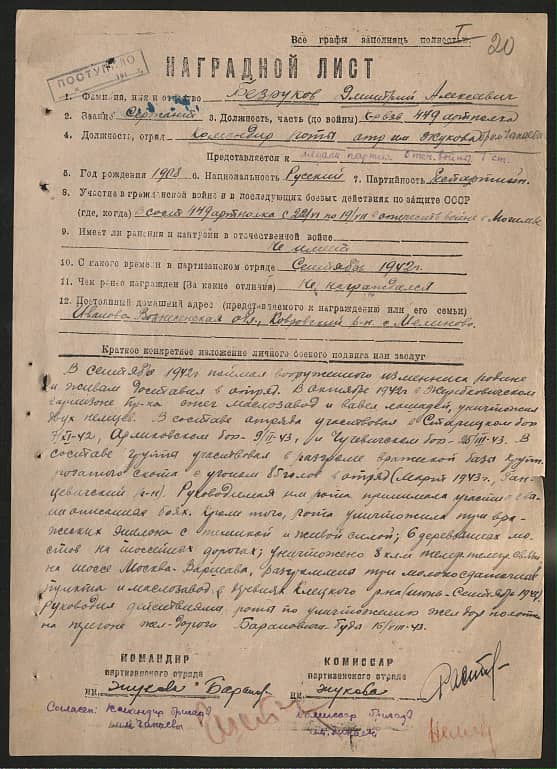 Все графы заполнять полностью.
20
ПОСТУПИЛО
НАГРАДНОЙ ЛИСТ
1. Фамилия, имя и отчество Безруков Дмитрий Алексеевич
2. Звание Сержант 3. Должность, часть (до войны) 449 артполка
4. Должность, отряд Командир роты отр им Жукова бр им Чапаева
Представляется к медали партиз. Отеч. войны I ст.
5. Год рождения 1908 6. Национальность Русский 7. Партийность Беспартийн.
8. Участие в гражданской войне и в последующих боевых действиях по защите СССР
(где, когда) В сост 449 артполка с 22/VI по 19/VII в отечеств войне г.
9. Имеет ли ранения и контузии в отечественной войне
Не имеет
10. С какого времени в партизанском отряде Сентябрь 1942 г.
11. Чем ранее награжден (За какие отличия) Не награждался
12. Постоянный домашний адрес (представляемого к награждению или его семьи)
Иваново Вознесенская обл., Ковровский р-н. с. Мелихово.
Краткое конкретное изложение личного боевого подвига или заслуг
В сентябре 1942 г поймал вооруженного изменника родине
и живым доставил в отряд. В октябре 1942 г в
гарнизоне сжег маслозавод и вывел лошадей, уничтожил
двух немцев. В составе отряда участвовал в Старицком бою
7/XI-42, бою 9/II-43, и Чучевичском бою 25/III-43. В
составе группы участвовал в разгроме вражеской базы круп.
рогатого скота с угоном 85 голов в отряд (Март 1943 г.
р-н). Руководимая им рота принимала участие в
вышеописанных боях. Кроме того, рота уничтожила три вра-
жеских эшелона с техникой и живой силой; 6 деревянных мо-
стов на шоссейных дорогах; уничтожено 8 клм телег. связи
на шоссе Москва-Варшава, разгромлены три молокосдаточных
пункта и маслозавод в Клецкого р-на (июнь-Сентябрь 1942),
руководил действиями роты по уничтожению жел дор полотна
на перегоне жел-дороги Барановичи-Буды 15/VIII-43.
КОМАНДИР
партизанского отряда
им. Жукова
КОМИССАР
партизанского отряда
им. Жукова
Согласен: Командир бригады
им. Чапаева
Комиссар бригады
им. Чапаева